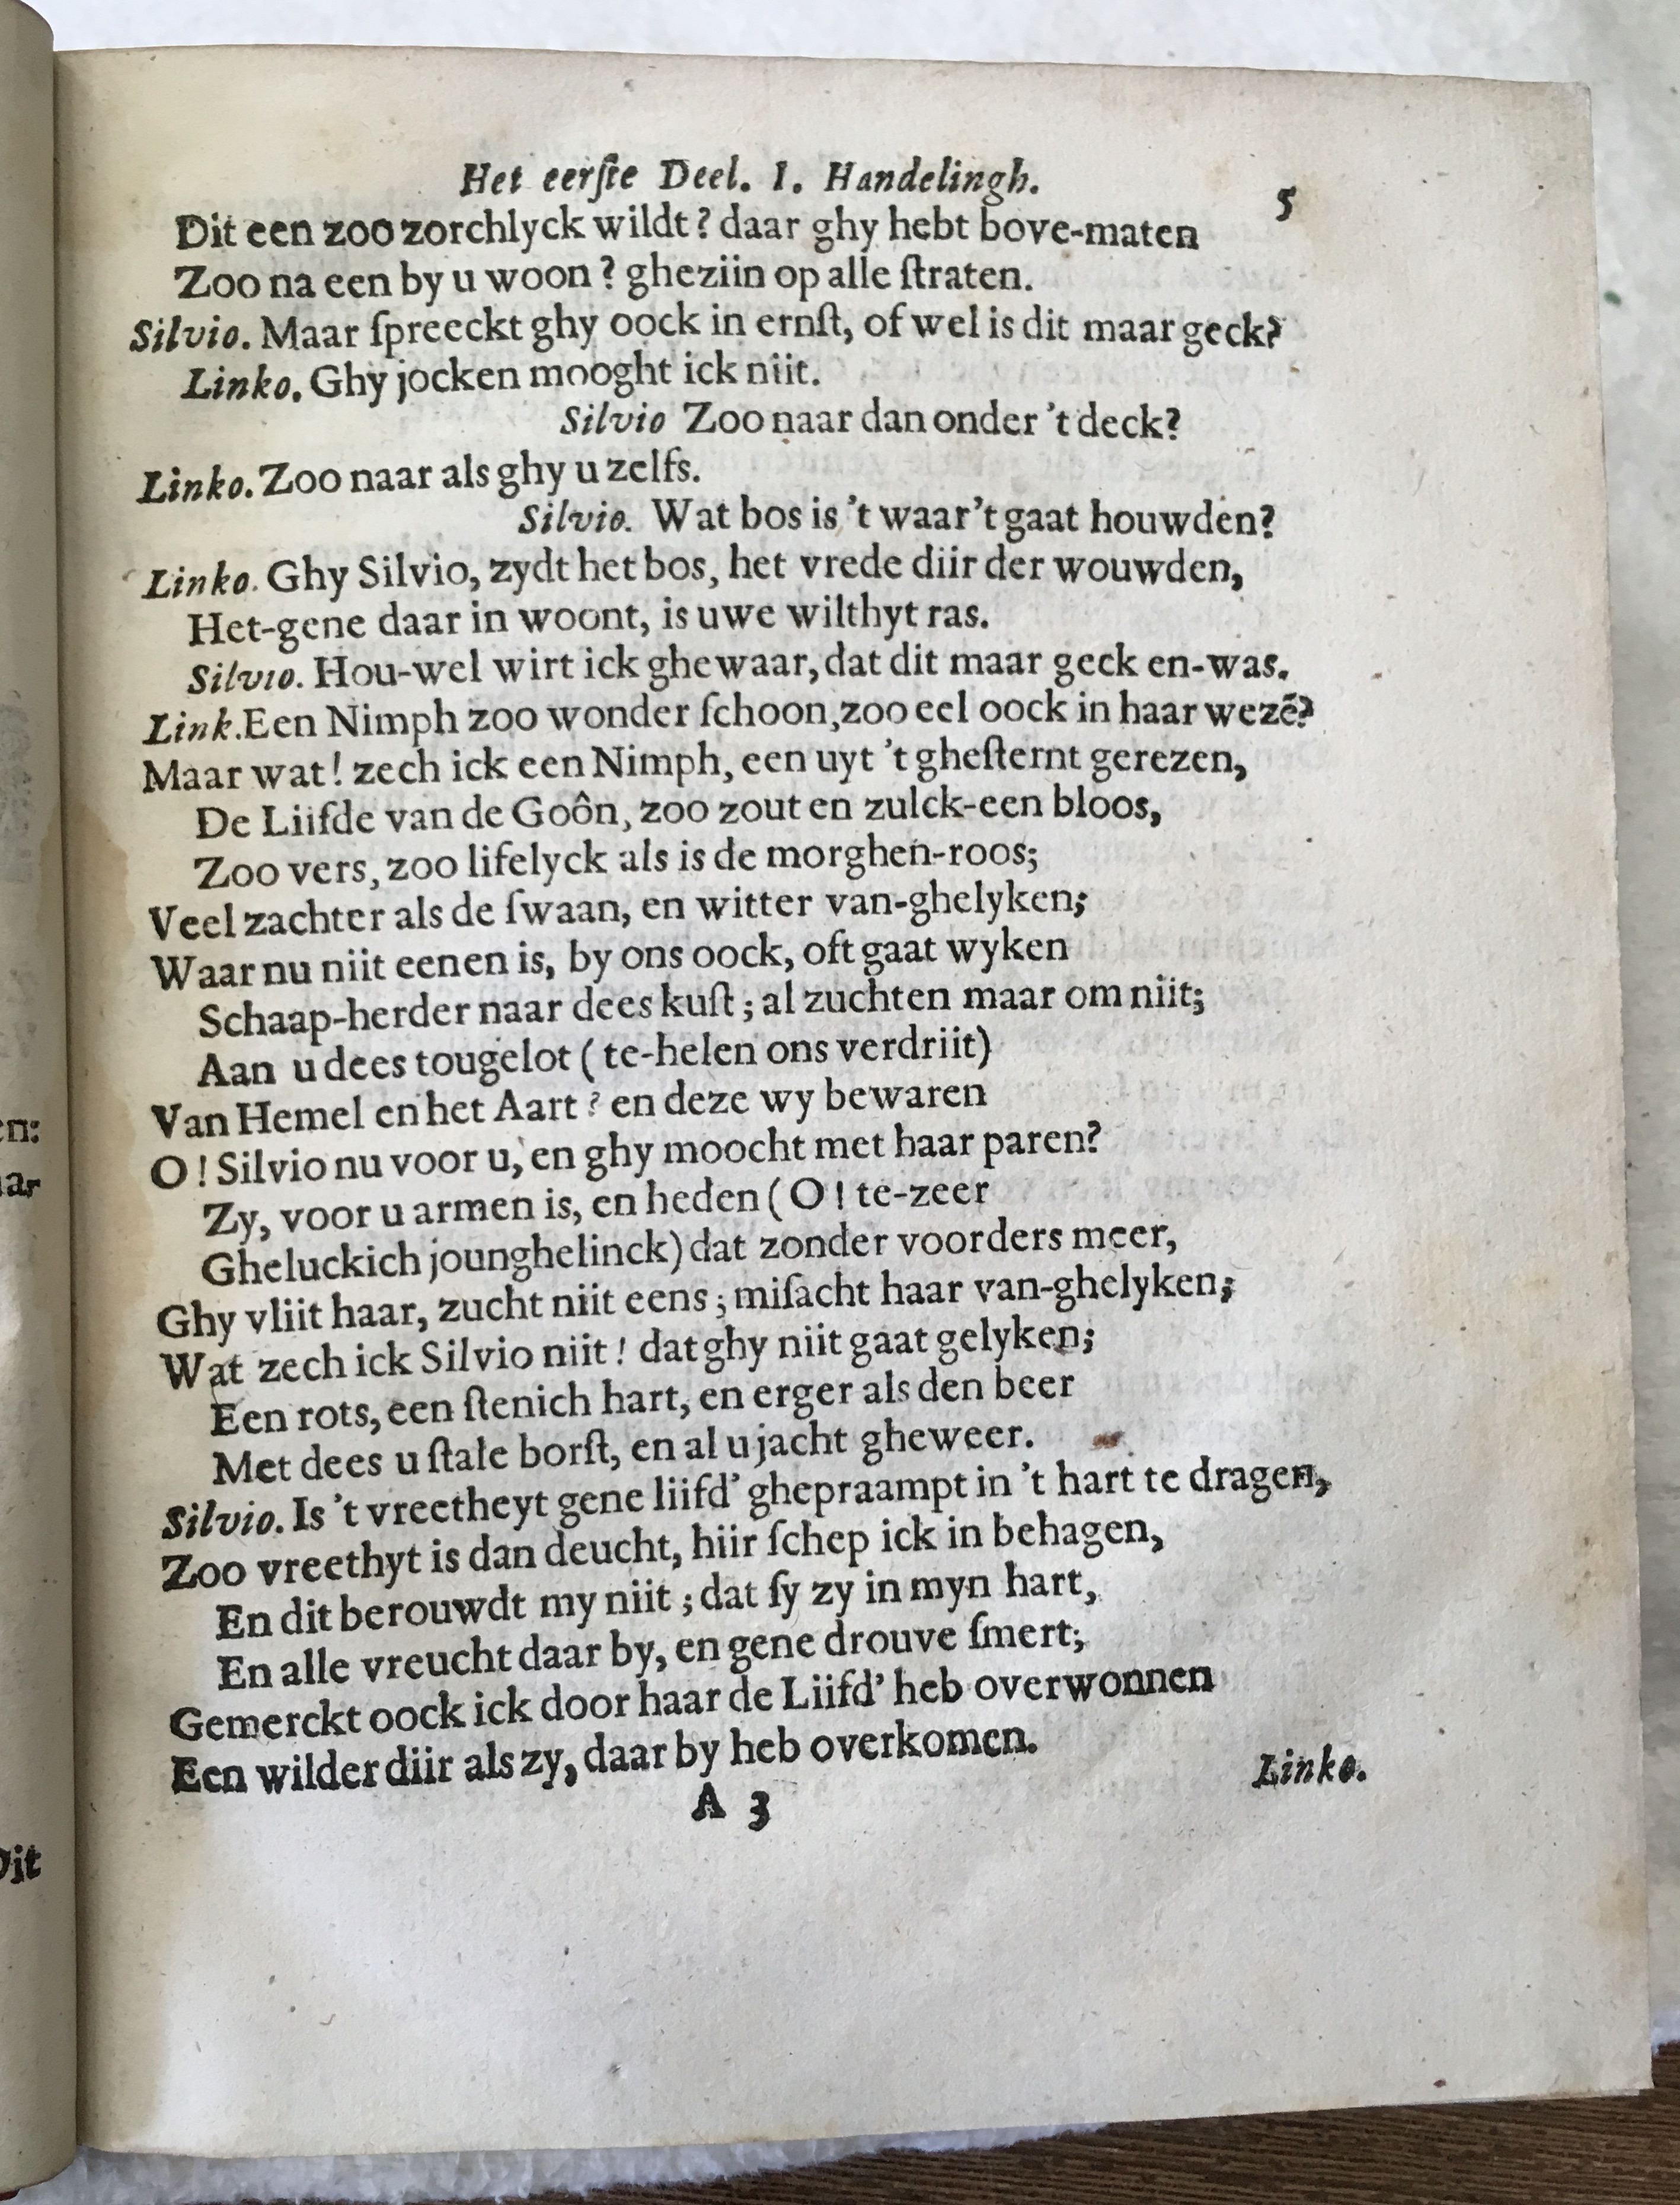 Het eerſte Deel. I. Handelingh.
5
Dit een zoo zorchlyck wildt? daar ghy hebt bove-maten
Zoo na een by u woon? gheziin op alle ſtraten.
Silvio. Maar ſpreeckt ghy oock in ernſt, of wel is dit maar geck?
Linko. Ghy jocken mooght ick niit.
Silvio Zoo naar dan onder 't deck?
Linko. Zoo naar als ghy u zelfs.
Silvio. Wat bos is 't waar't gaat houwden?
Linko. Ghy Silvio, zydt het bos, het vrede diir der wouwden,
Het-gene daar in woont, is uwe wilthyt ras.
Silvio. Hou-wel wirt ick ghewaar, dat dit maar geck en-was.
Link. Een Nimph zoo wonder ſchoon, zoo eel oock in haar wezē?
Maar wat! zech ick een Nimph, een uyt 't gheſternt gerezen,
De Liifde van de Goôn, zoo zout en zulck-een bloos,
Zoo vers, zoo lifelyck als is de morghen-roos;
Veel zachter als de ſwaan, en witter van-ghelyken;
Waar nu niit eenen is, by ons oock, oft gaat wyken
Schaap-herder naar dees kuſt; al zuchten maar om niit;
Aan u dees tougelot (te-helen ons verdriit)
Van Hemel en het Aart? en deze wy bewaren
O! Silvio nu voor u, en ghy moocht met haar paren?
Zy, voor u armen is, en heden (O! te-zeer
Gheluckich jounghelinck) dat zonder voorders meer,
Ghy vliit haar, zucht niit eens; miſacht haar van-ghelyken;
Wat zech ick Silvio niit! dat ghy niit gaat gelyken;
Een rots, een ſtenich hart, en erger als den beer
Met dees u ſtale borſt, en al u jacht gheweer.
Silvio. Is 't vreetheyt gene liifd' ghepraampt in 't hart te dragen,
Zoo vreethyt is dan deucht, hiir ſchep ick in behagen,
En dit berouwdt my niit; dat ſy zy in myn hart,
En alle vreucht daar by, en gene drouve ſmert;
Gemerckt oock ick door haar de Liifd' heb overwonnen
Een wilder diir als zy, daar by heb overkomen.
A 3
Linko.
en:
ar
Dit